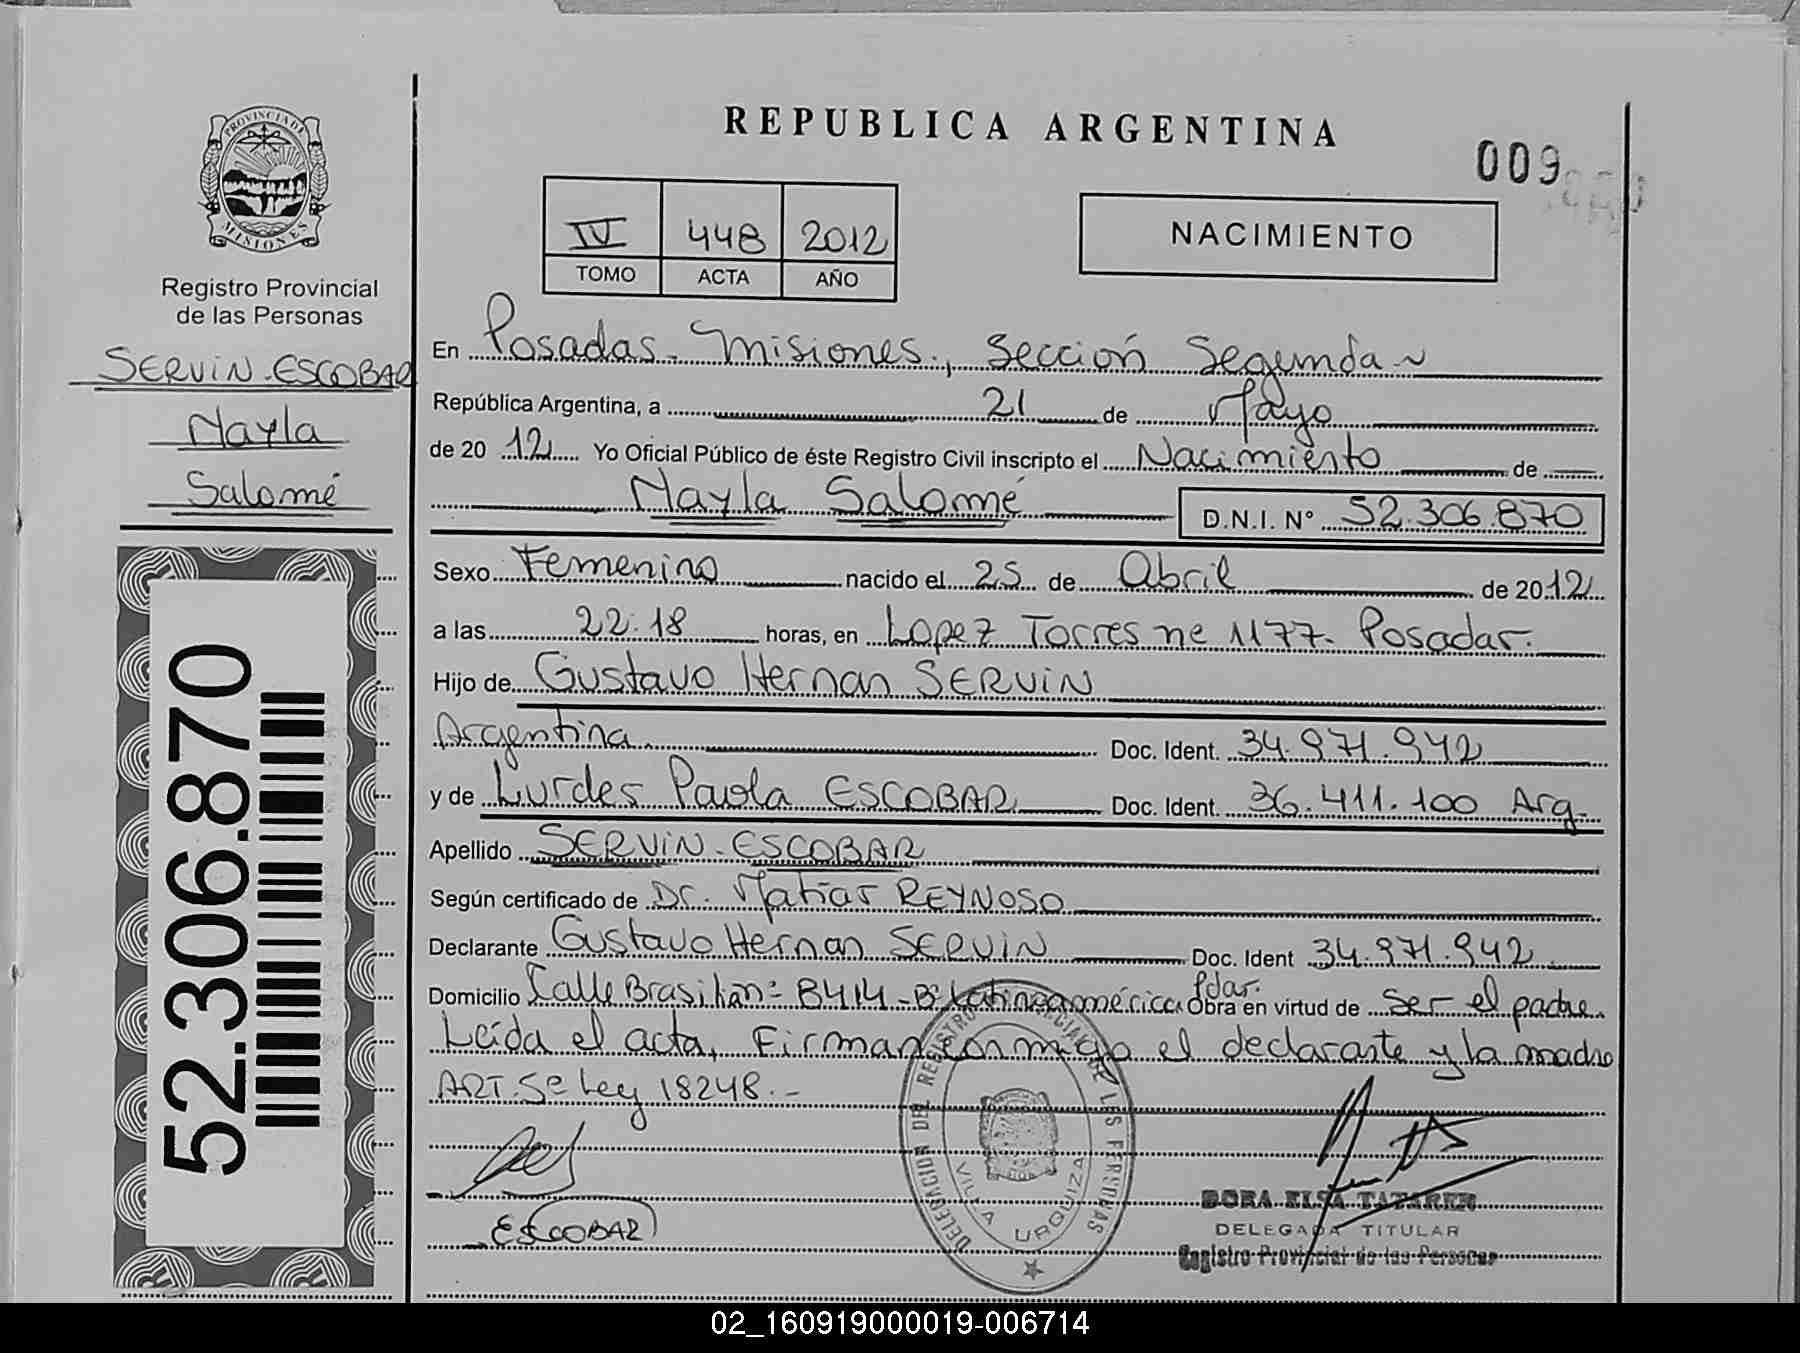 PROVINCIA DE
MISIONES
Registro Provincial
de las Personas
SERVIN-ESCOBAR
Nayla
Salomé
52.306.870
REPUBLICA ARGENTINA
009
IV 448 2012
TOMO ACTA AÑO
NACIMIENTO
En Posadas - Misiones, Sección Segunda
República Argentina, a 21 de Mayo
de 20 12 Yo Oficial Público de éste Registro Civil inscripto el Nacimiento de
Nayla Salomé D.N.I. N° 52.306.870
Sexo Femenino nacido el 25 de Abril de 2012
a las 22:18 horas, en Lopez Torres ne 1177- Posadas.
Hijo de Gustavo Hernan SERVIN
Argentina Doc. Ident. 34.971.942
y de Lurdes Paola ESCOBAR Doc. Ident. 36.411.100 Arg.
Apellido SERVIN-ESCOBAR
Según certificado de Dr. Matias REYNOSO
Declarante Gustavo Hernan SERVIN Doc. Ident 34.971.942
Domicilio Calle Brasil n° 8414 - B° Latinoamérica Pdas. Obra en virtud de Ser el padre.
Leída el acta, Firman conmigo el declarante y la madre
ART. 5° Ley 18248.-
ESCOBAR
DELEGACION DEL REGISTRO PROVINCIAL DE LAS PERSONAS
VILLA URQUIZA
DORA ELSA
DELEGADA TITULAR
Registro Provincial de las Personas
02_160919000019-006714